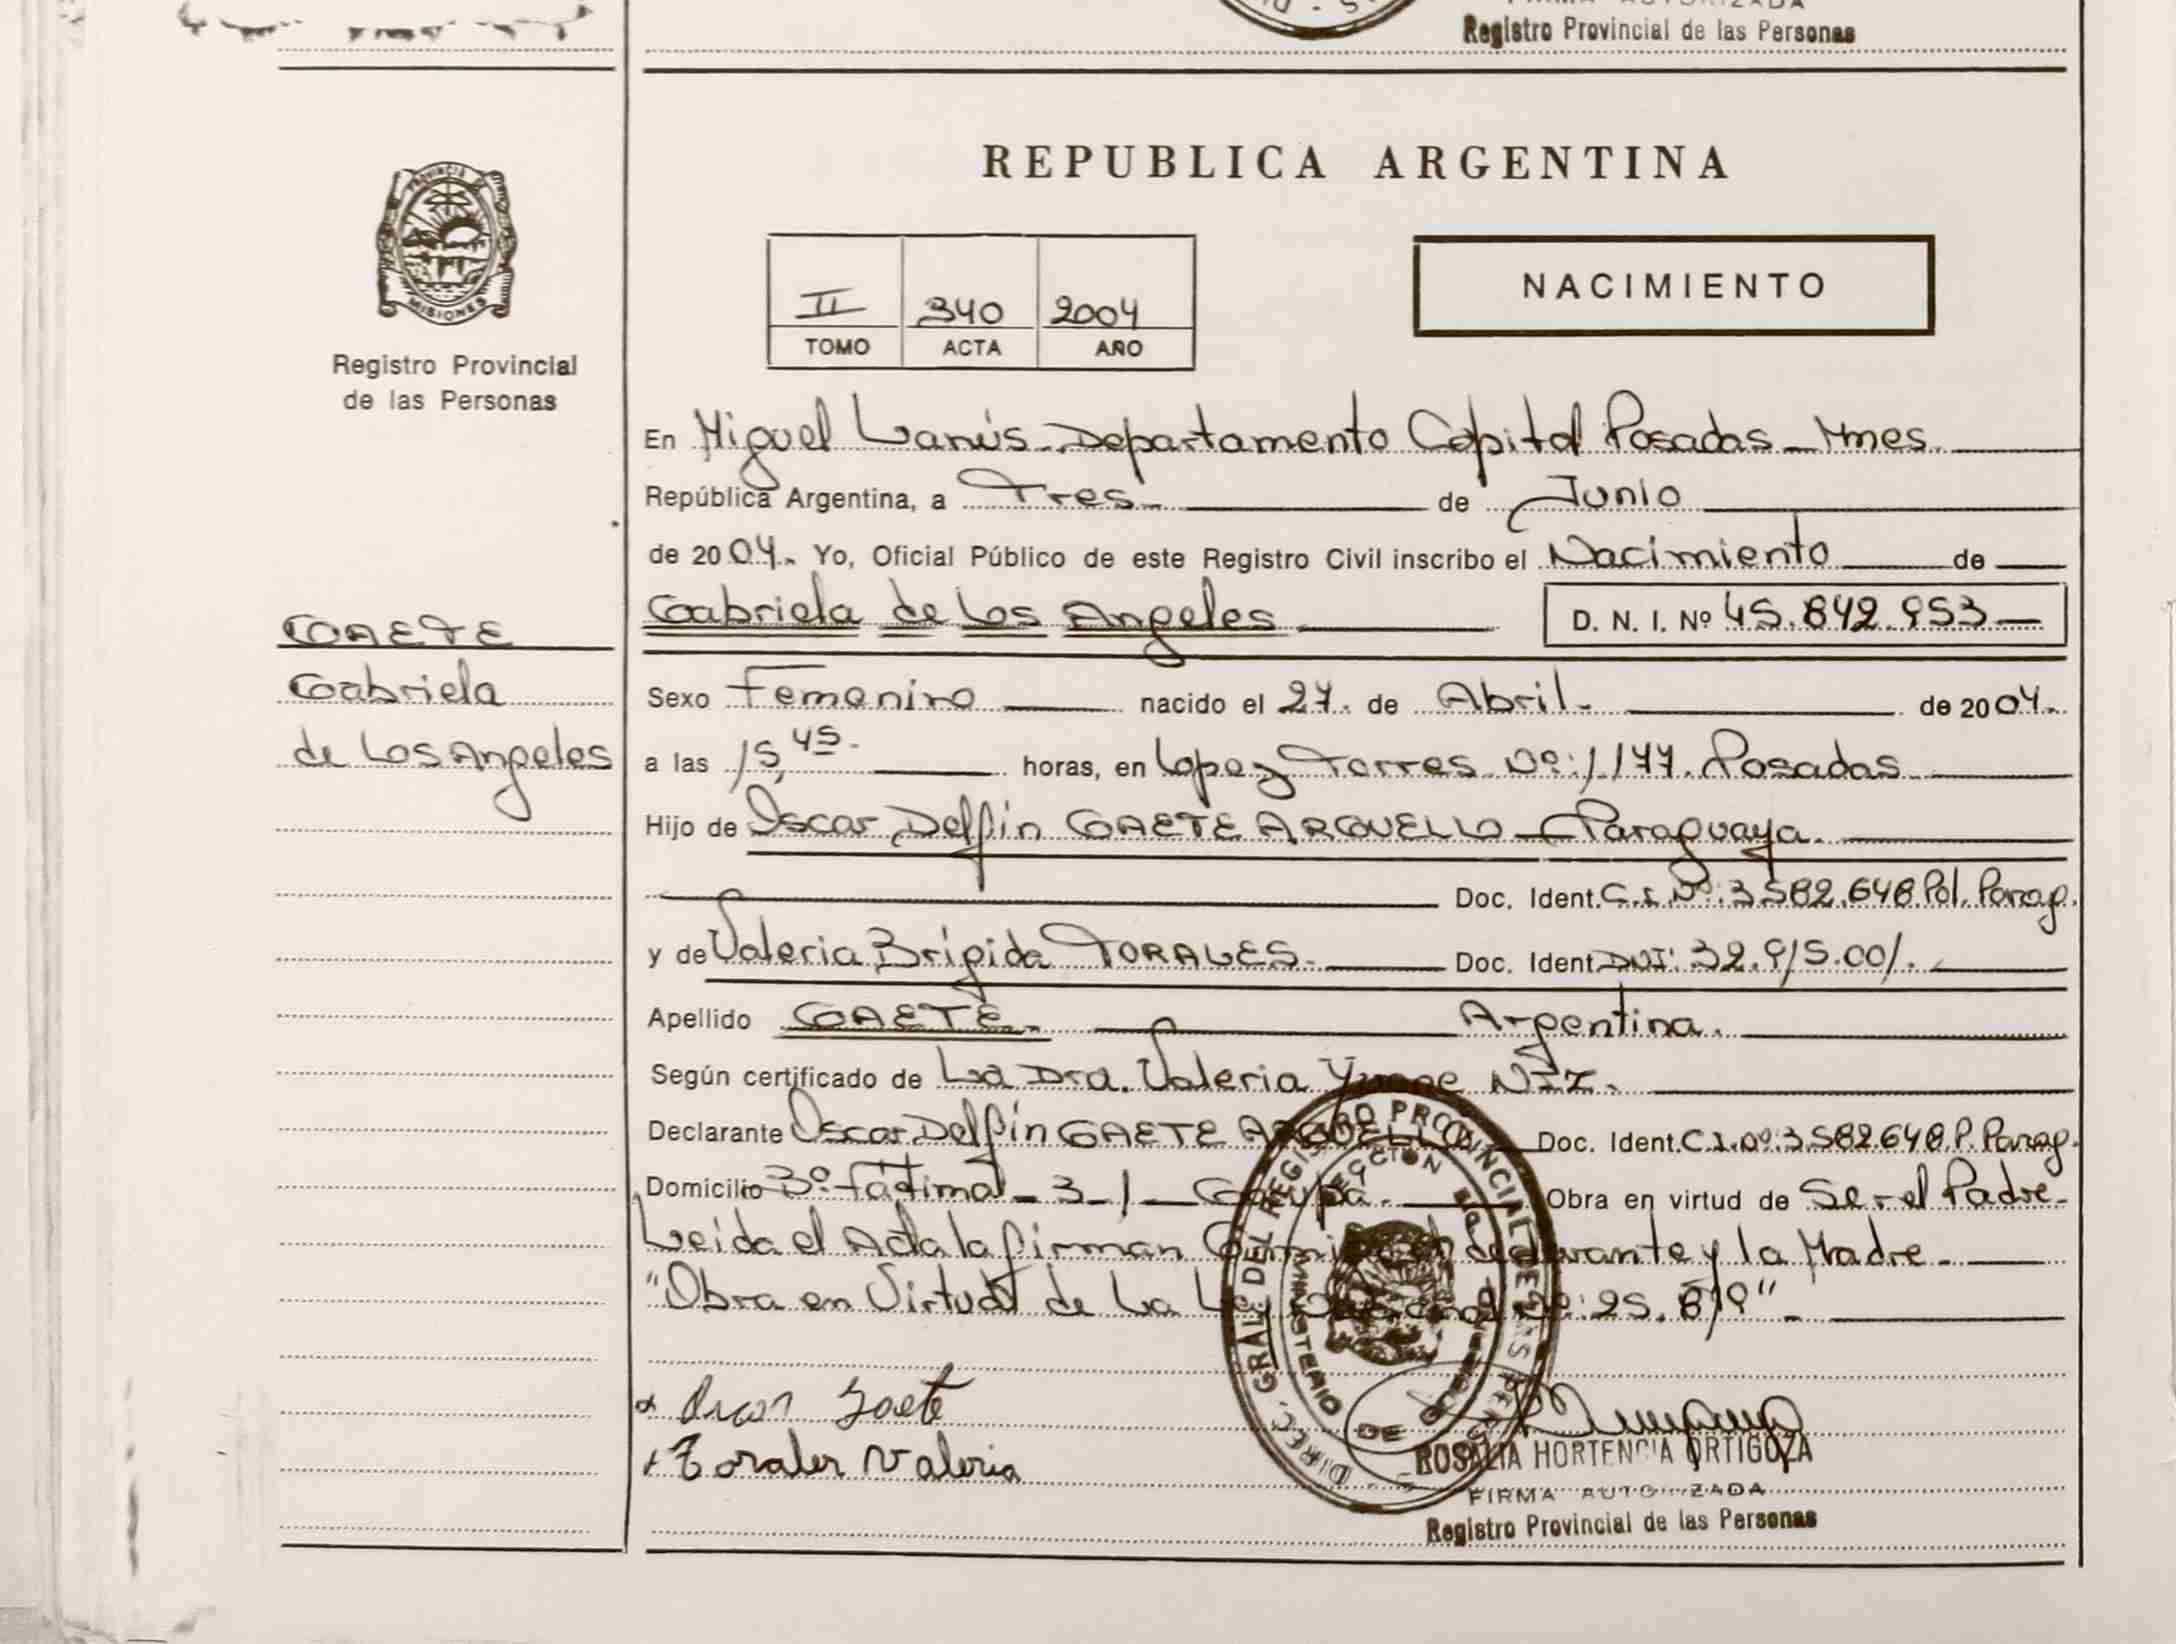 FIRMA AUTORIZADA
Registro Provincial de las Personas
PROVINCIA DE
MISIONES
Registro Provincial
de las Personas
REPUBLICA ARGENTINA
II 340 2004
TOMO ACTA AÑO
NACIMIENTO
En Miguel Lanús - Departamento Capital Posadas - Mnes.
República Argentina, a Tres de Junio
de 2004. Yo, Oficial Público de este Registro Civil inscribo el Nacimiento de
GAETE
Gabriela
de Los Angeles
Gabriela de Los Angeles D. N. I. Nº 45.842.953
Sexo Femenino nacido el 27. de Abril. de 2004.
a las 15,45. horas, en Lopez Torres Nº: 1177. Posadas
Hijo de Oscar Delfín GAETE ARGUELLO - Paraguaya.
Doc. Ident. C.I. Nº: 3.582.648 Pol. Parag.
y de Valeria Brígida TORALES. Doc. Ident. DNI: 32.915.001.
Apellido GAETE. Argentina.
Según certificado de La Dra. Valeria NIZ.
Declarante Oscar Delfín GAETE ARGUELLO Doc. Ident. C.I. Nº: 3.582.648. P. Parag.
Domicilio Bº. Fátima - 3 - 1 - Garupá. Obra en virtud de Ser el Padre.
Leida el Acta la firman Conmigo el declarante y la Madre.
"Obra en Virtud de La Ley Nacional Nº: 25.819".
Oscar Gaete
Torales Valeria
DIREC. GRAL. DEL REGISTRO PROVINCIAL DE LAS PERSONAS
MINISTERIO DE GOBIERNO
ROSALIA HORTENCIA ORTIGOZA
FIRMA AUTORIZADA
Registro Provincial de las Personas